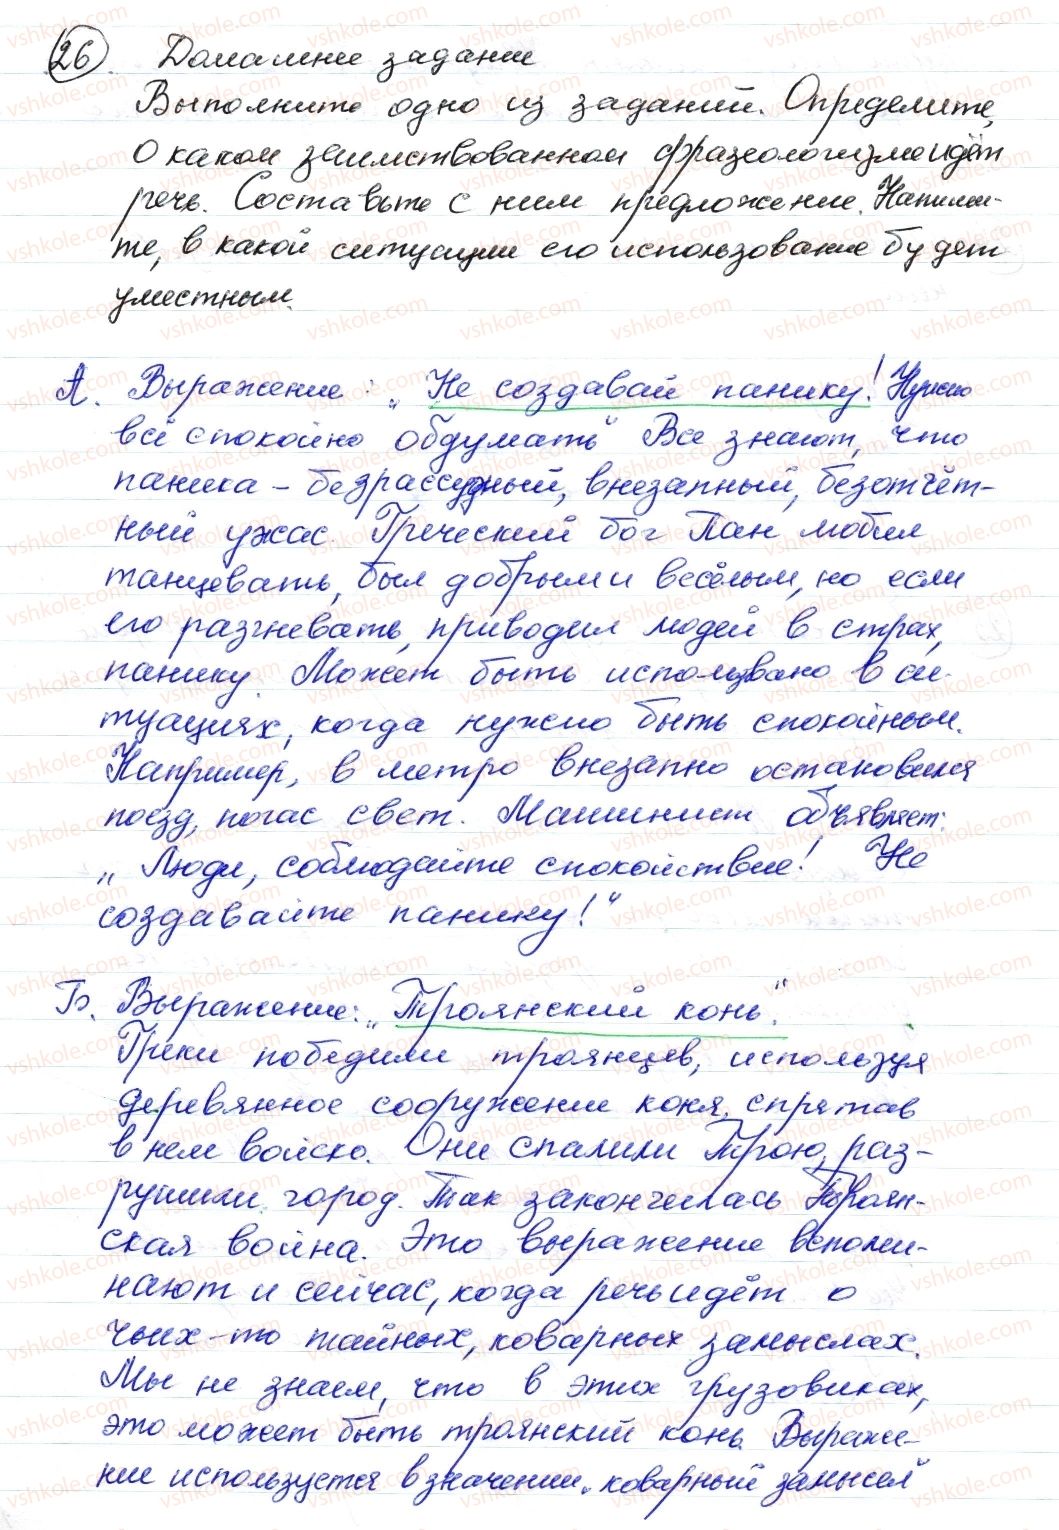 26. Домашнее задание
Выполните одно из заданий. Определите,
о каком заимствованном фразеологизме идёт
речь. Составьте с ним предложение. Напиши-
те, в какой ситуации его использование будет
уместным.
А. Выражение: „Не создавай панику! Нужно
всё спокойно обдумать" Все знают, что
паника – безрассудный, внезапный, безотчёт-
ный ужас. Греческий бог Пан любил
танцевать, был добрым и весёлым, но если
его разгневать, приводил людей в страх,
панику. Может быть использвано в си-
туациях, когда нужно быть спокойным.
Например, в метро внезапно остановился
поезд, погас свет. Машинист объявляет:
„Люди, соблюдайте спокойствие! Не
создавайте панику!"
Б. Выражение: „Троянский конь".
Греки победили троянцев, используя
деревянное сооружение коня, спрятав
в нем войско. Они спалили Трою, раз-
рушили город. Так закончилась Троян-
ская война. Это выражение вспоми-
нают и сейчас, когда речь идёт о
чьих-то тайных, коварных замыслах.
Мы не знаем, что в этих грузовиках,
это может быть троянский конь. Выраже-
ние используется в значении „коварный замысел"